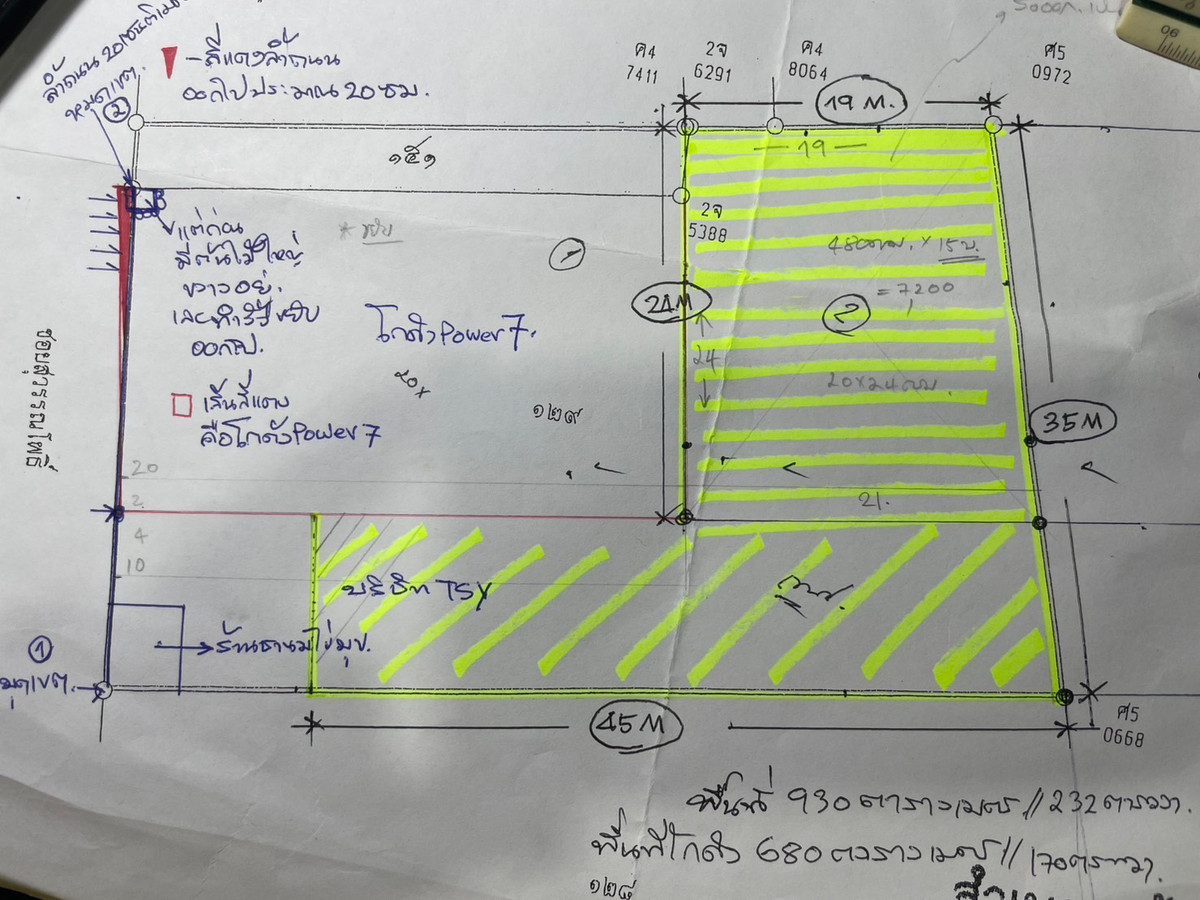 ล้ำถนน 20 เซนติเม
หมุดเขต.
②
-สีแดงล้ำถนน
ออกไปประมาณ 20 ซม.
ค4
7411
2จ
6291
ค4
8064
ศ5
0972
19 M.
19
๑๕๑
แต่ก่อน
มีต้นไม้ใหญ่
ขวางอยู่.
ออกไป.
2จ
5388
1
480 ตม. × 15 บ.
= 7200
2
24 M
24
โกดัง Power 7.
20 x 24 ตม
๑๒๙
เส้นสีแดง
คือโกดัง Power 7
35 M
ซอยสุวรรณโพธิ์
20
2.
4
10
21.
บริษัท TSY
①
หมุดเขต.
ร้านชานมไข่มุข.
45 M
ศ5
0668
พื้นที่ 930 ตารางเมตร // 232 ตรวา.
พื้นที่โกดัง 680 ตารางเมตร // 170 ตรวา.
๑๒๘